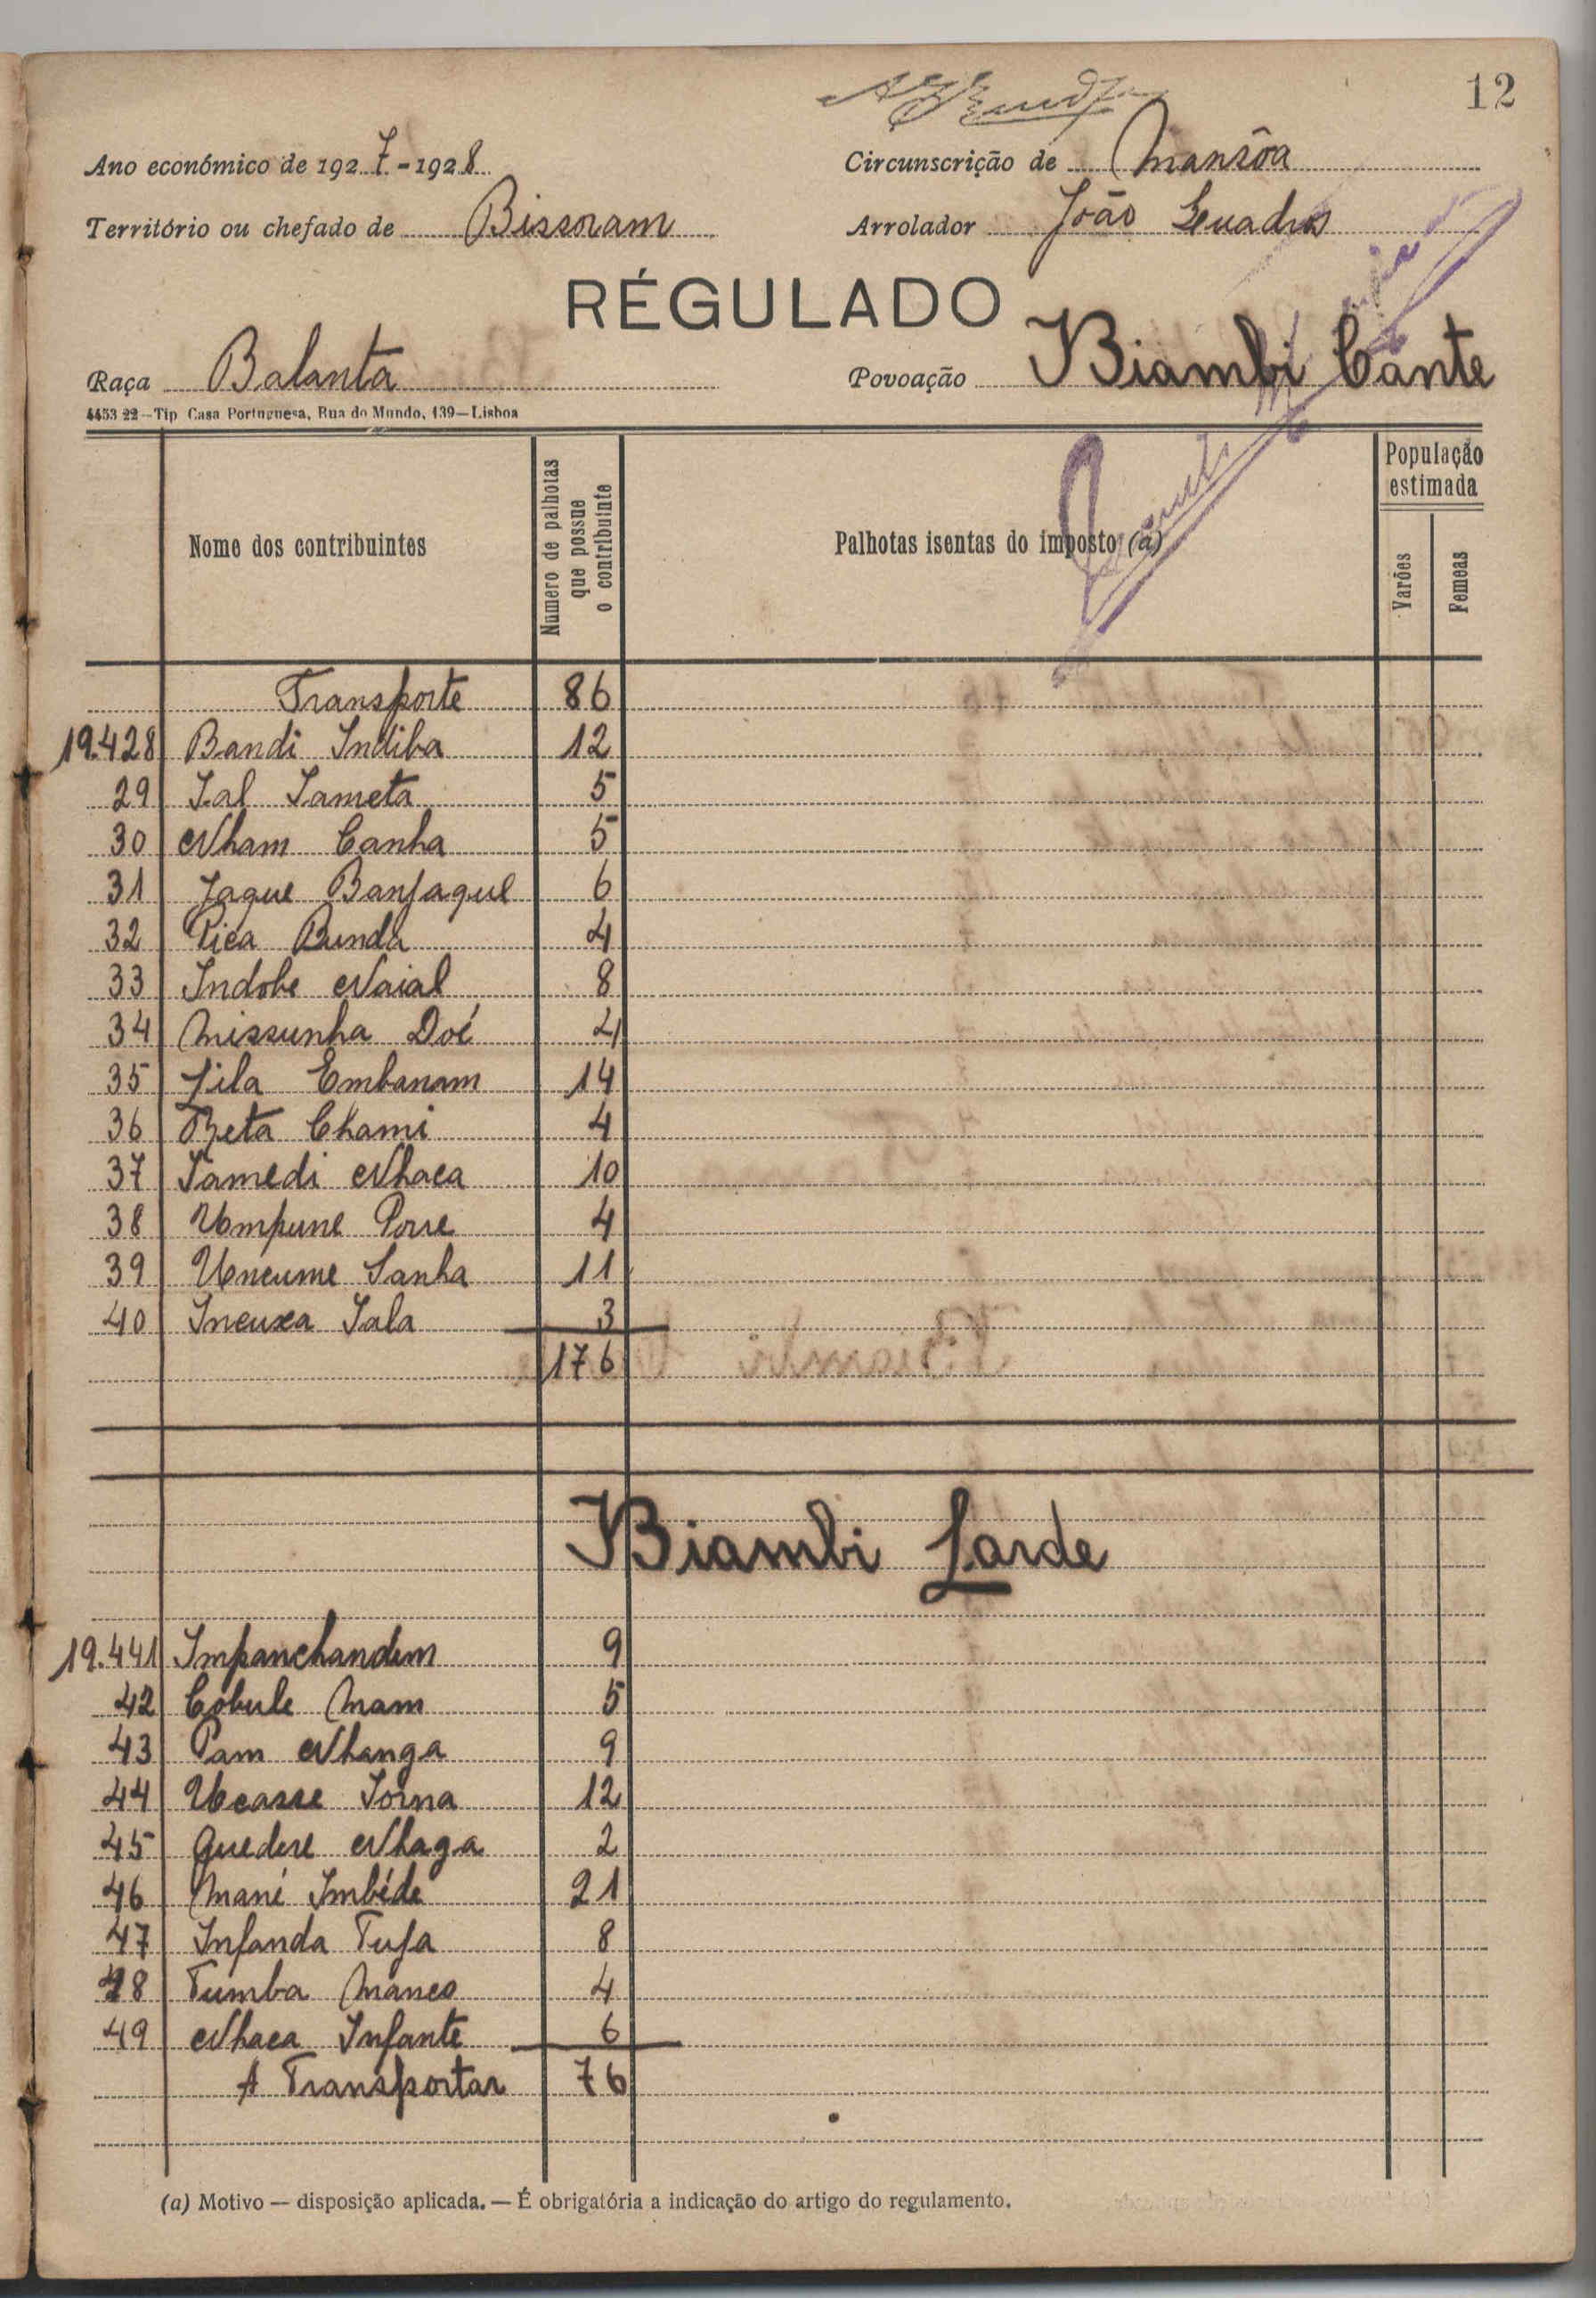 12
Ano económico de 1927-1928
Circunscrição de Mansôa
Território ou chefado de Bissoram
Arrolador João
RÉGULADO
Raça Balanta
Povoação Biambi Cante
4453 22—Tip Casa Portuguesa, Rua do Mundo, 139—Lisboa
Nome dos contribuintes
Número de palhotas que possue o contribuinte
Palhotas isentas do imposto (a)
População estimada
Varões
Femeas
Transporte 86
19.428 Bandi Indiba 12
29 Ial Iameta 5
30 Nham Canha 5
31 Jaque Banjaque 6
32 Pica Bunda 4
33 Indobe Naial 8
34 Missunha Doé 4
35 Jila Embanam 14
36 Beta Chami 4
37 Iamedi Nhaca 10
38 Umpune Porre 4
39 Uncume Sanha 11
40 Incuxa Iala 3
176
Biambi Larde
19.441 Impanchandim 9
42 Cobule Mam 5
43 Pam Nhanga 9
44 Ucasse Iorna 12
45 Quedere Nhaga 2
46 Mané Imbéde 21
47 Infanda Tufa 8
48 Tumba Manco 4
49 Nhaca Infante 6
A Transportar 76
(a) Motivo — disposição aplicada. — É obrigatória a indicação do artigo do regulamento.